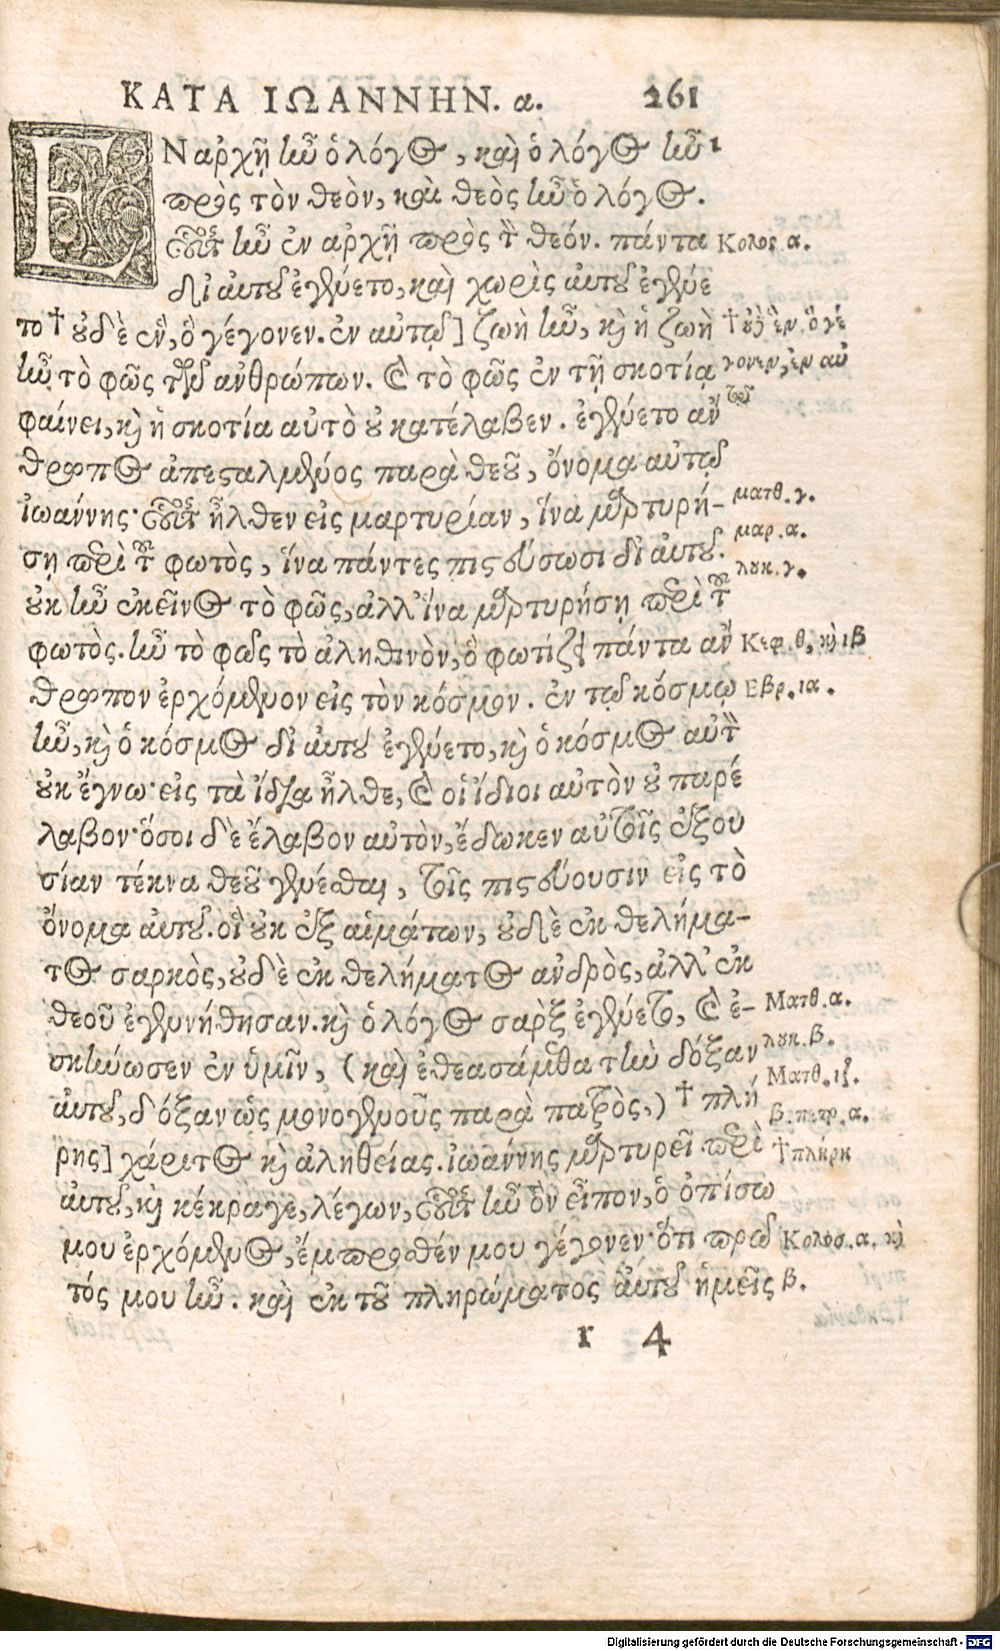 ΚΑΤΑ ΙΩΑΝΝΗΝ. α. 261
ΕΝ ἀρχῇ ἦν ὁ λόγος, καὶ ὁ λόγος ἦν 1
πρὸς τὸν θεὸν, καὶ θεὸς ἦν ὁ λόγος.
οὗτος ἦν ἐν ἀρχῇ πρὸς τὸν θεόν. πάντα Κολος. α.
δι αὐτοῦ ἐγένετο, καὶ χωρὶς αὐτοῦ ἐγένε
το † οὐδὲ ἓν, ὃ γέγονεν. ἐν αὐτῷ] ζωὴ ἦν, καὶ ἡ ζωὴ † οὐδὲ ἓν. ὃ γέ
ἦν τὸ φῶς τῶν ἀνθρώπων. καὶ τὸ φῶς ἐν τῇ σκοτίᾳ γονεν, ἐν αὐ
φαίνει, καὶ ἡ σκοτία αὐτὸ οὐ κατέλαβεν. ἐγένετο ἄν τῷ
θρωπος ἀπεσταλμένος παρὰ θεοῦ, ὄνομα αὐτῷ
ἰωάννης· οὗτος ἦλθεν εἰς μαρτυρίαν, ἵνα μαρτυρή- ματθ. γ.
σῃ περὶ τοῦ φωτὸς, ἵνα πάντες πιστεύσωσι δι αὐτοῦ. μαρ. α.
λυκ. γ.
οὐκ ἦν ἐκεῖνος τὸ φῶς, ἀλλ' ἵνα μαρτυρήσῃ περὶ τοῦ
φωτὸς. ἦν τὸ φῶς τὸ ἀληθινὸν, ὃ φωτίζει πάντα ἄν Κεφ. θ. καὶ ιβ
θρωπον ἐρχόμενον εἰς τὸν κόσμον. ἐν τῷ κόσμῳ Εβρ. ια.
ἦν, καὶ ὁ κόσμος δι αὐτοῦ ἐγένετο, καὶ ὁ κόσμος αὐτὸν
οὐκ ἔγνω· εἰς τὰ ἴδια ἦλθε, καὶ οἱ ἴδιοι αὐτὸν οὐ παρέ
λαβον· ὅσοι δὲ ἔλαβον αὐτὸν, ἔδωκεν αὐτοῖς ἐξου
σίαν τέκνα θεοῦ γενέσθαι, τοῖς πιστεύουσιν εἰς τὸ
ὄνομα αὐτοῦ. οἳ οὐκ ἐξ αἱμάτων, οὐδὲ ἐκ θελήμα-
τος σαρκὸς, οὐδὲ ἐκ θελήματος ἀνδρὸς, ἀλλ' ἐκ
θεοῦ ἐγεννήθησαν. καὶ ὁ λόγος σὰρξ ἐγένετο, καὶ ἐ- Ματθ. α.
σκήνωσεν ἐν ὑμῖν, (καὶ ἐθεασάμεθα τὴν δόξαν λυκ. β.
Ματθ. ιζ.
αὐτοῦ, δόξαν ὡς μονογενοῦς παρὰ πατρὸς,) † πλή β. πετρ. α.
ρης] χάριτος καὶ ἀληθείας. ἰωάννης μαρτυρεῖ περὶ † πλήρη
αὐτοῦ, καὶ κέκραγε, λέγων, οὗτος ἦν ὃν εἶπον, ὁ ὀπίσω
μου ἐρχόμενος, ἔμπροσθέν μου γέγονεν· ὅτι πρῶ Κολοσ. α. καὶ
τός μου ἦν. καὶ ἐκ τοῦ πληρώματος αὐτοῦ ἡμεῖς β.
r 4
Digitalisierung gefördert durch die Deutsche Forschungsgemeinschaft - DFG